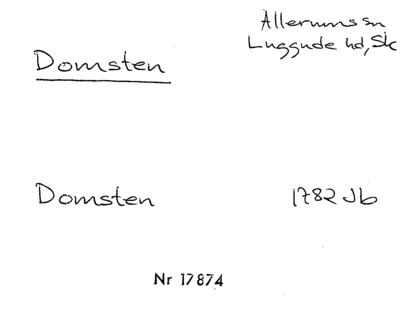 Allerums sn
Luggude hd, Sk
Domsten
Domsten 1782 Jb
Nr 17874